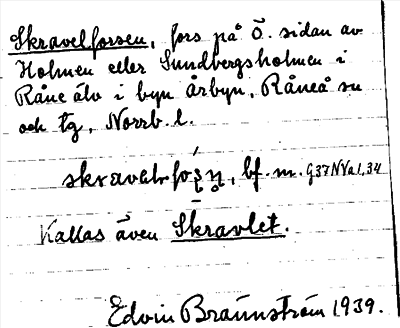 Skravelforsen, fors på ö. sidan av
Holmen eller Sundbergsholmen i
Råne älv i byn Årbyn, Råneå sn
och tg, Norrb. l.
bf. m. G37NVa1,34
Kallas även Skravlet.
Edvin Brännström 1939.